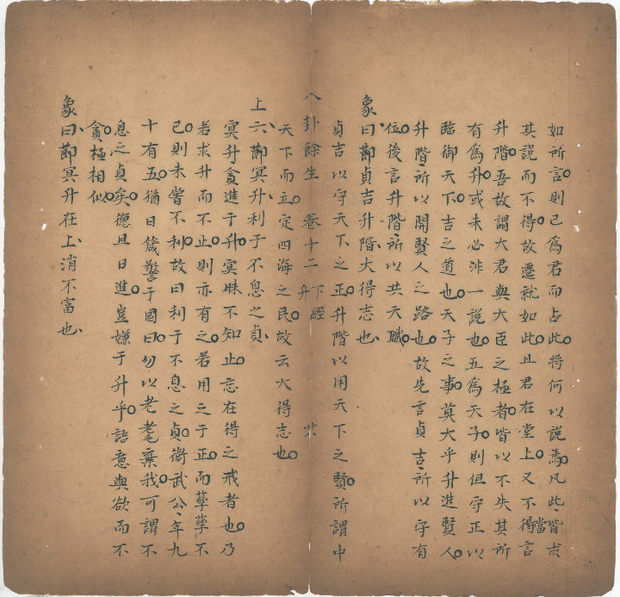 如所言則已爲君而占此將何以說焉凡此皆求
其說而不得故遷就如此且君在堂上又不得言當
升階吾故謂大君與大臣之極者皆以不失其所
有爲升或未必非一說也五爲天子則但守正以
臨御天下吉之道也天子之事莫大乎升進賢人
升階所以開賢人之路也故先言貞吉所以守有
位後言升階所以共天職
象曰節貞吉升階大得志也
貞吉以守天下之正升階以用天下之賢所謂中
天下而立定四海之民故云大得志也
八卦餘生 卷十二 下經 升 共
上六節冥升利于不息之貞
冥升貪進于升冥昧不知止忘在得之戒者也乃
若求升而不止則亦有之若用之于正而孳孳不
已則未嘗不利故曰利于不息之貞衛武公年九
十有五猶日箴警于國曰勿以老耄棄我可謂不
息之貞矣德且日進豈嫌于升乎語意與欲而不
貪極相似
象曰節冥升在上消不富也